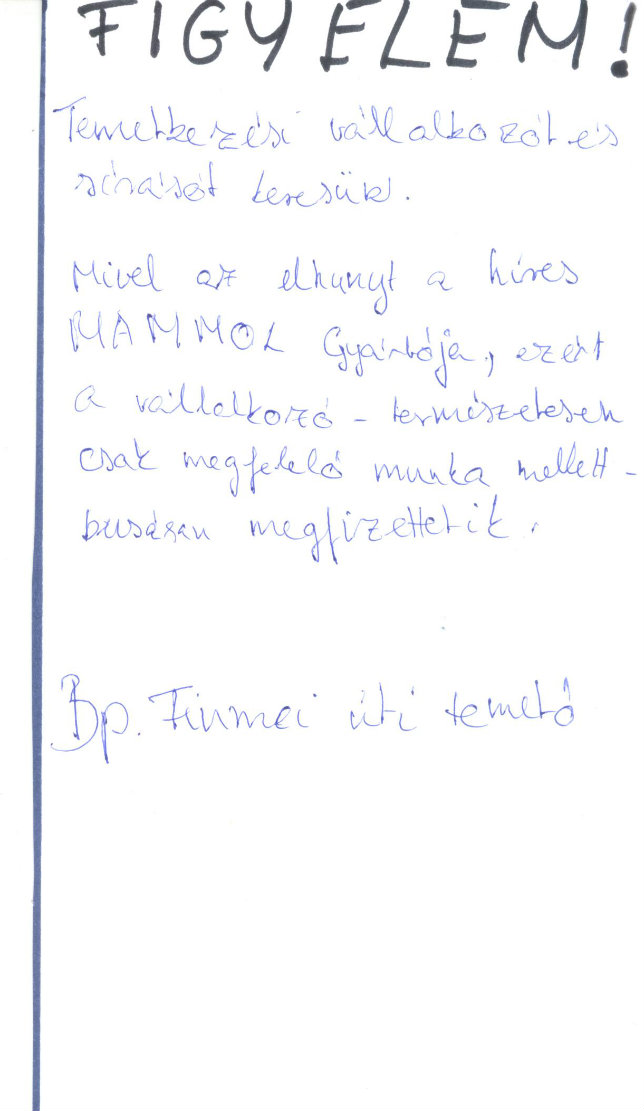 FIGYELEM!
Temetkezési vállalkozót és
sírásót keresünk.
Mivel az elhunyt a híres
MAMMOL Gyártója, ezért
a vállalkozó - természetesen
csak megfelelő munka mellett -
busásan megfizettetik.
Bp. Fiumei úti temető